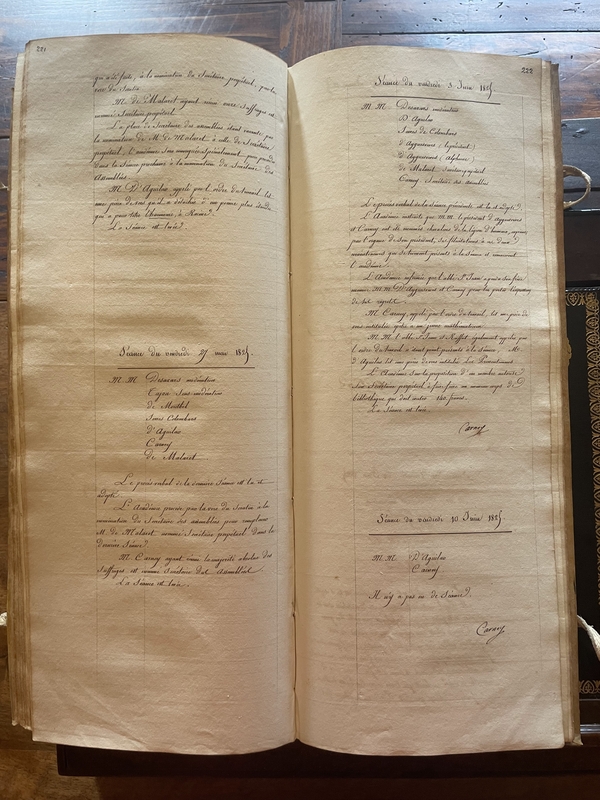 221
qui a été faite, à la nomination du Secrétaire perpétuel, par la
voie du Scrutin
M. de Malaret ayant réuni onze Suffrages est
nommé Secrétaire perpétuel.
La place de Secrétaire des assemblées, étant vacante par
la nomination de M. de Malaret à celle de Secrétaire
perpétuel, l'académie
dans la Séance prochaine à la nomination du Secrétaire des
Assemblées.
M. D'Aguilar, appelé par l'ordre du travail, lit
une pièce de vers qu'il a
qui a pour titre
La Séance est levée.
Séance du vendredi 27 mai 1825.
M. M. Desazars modérateur
Cajou Sous-modérateur
de Montbel
Jamme Colombars
d'Aguilar
Carney
de Malaret
Le procès verbal de la dernière Séance est lu et
adopté.
L'Académie procède par la voie du Scrutin à la
nomination du Secrétaire des assemblées pour remplacer
M. de Malaret nommé Secrétaire perpétuel dans la
dernière Séance.
M. Carney ayant réuni la majorité absolue des
Suffrages est nommé Secrétaire des Assemblées
La Séance est levée.
222
Séance du vendredi 3 Juin 1825.
M. M. Desazars modérateur
D'Aguilar
d'Ayguesvives (le président)
d'Ayguesvives (Alphonse)
de Malaret Secrétaire perpétuel
Carney Secrétaire des assemblées
Le procès verbal de la Séance précédente est lu et adopté.
L'Académie instruite que M. M. le président d'Ayguesvives
et Carney ont été nommés chevaliers de la légion d'honneur, exprime
par l'organe de son président, ses félicitations à ces deux
présents à la séance et remercient
l'académie.
L'Académie informée que l'abbé St Jean a perdu son frère
nomme M. M. D'Ayguesvives et Carney pour lui porter l'expression
de ses regrets.
M. Carney, appelé par l'ordre du travail, lit une pièce de
vers intitulée
M. M. l'abbé St Jean et Ruffat également appelés par
l'ordre du travail ne sont point présents à la séance. M.
d'Aguilar lit une pièce de vers intitulée
L'Académie sur la proposition d'un membre autorise
Son Secrétaire perpétuel à faire faire un nouveau corps de
bibliothèque qui doit coûter 120 francs.
La Séance est levée
Carney
Séance du vendredi 10 Juin 1825.
M. M. D'Aguilar
Carney
Il n'y a pas eu de Séance.
Carney